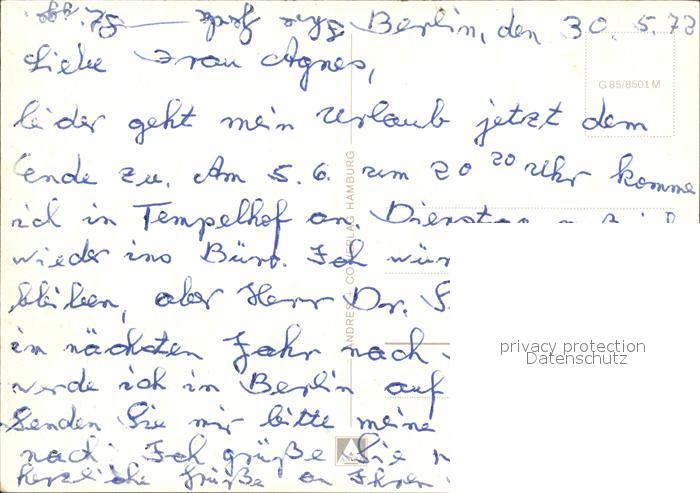 Berlin, den 30. 5. 73
Liebe Frau Agnes,
G 85/8501 M
leider geht mein Urlaub jetzt dem
Ende zu. Am 5. 6. um 20 20 Uhr komme
ich in Tempelhof an. Dienstag
wieder ins Büro. Ich
bleiben, aber Herr Dr. S
im nächsten Jahr nach
werde ich in Berlin auf
Senden Sie mir bitte meine
nach. Ich grüße Sie
herzliche Grüße an Ihren
ANDRES + CO VERLAG HAMBURG
privacy protection
Datenschutz